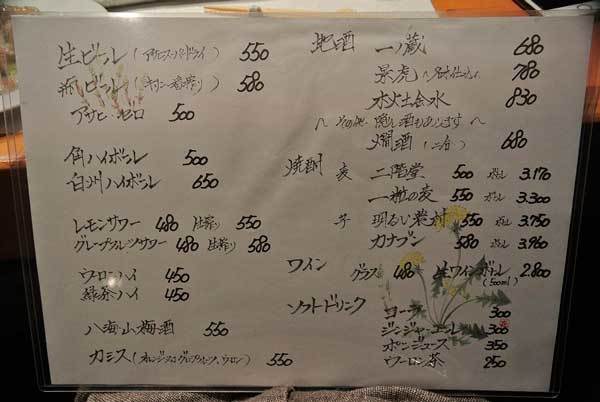 生ビール(アサヒスーパードライ) 550
瓶ビール(キリン一番搾り) 580
アサヒ・ゼロ 500
角ハイボール 500
白州ハイボール 650
レモンサワー 480 生搾り 550
グレープフルーツサワー 480 生搾り 580
ウーロンハイ 450
緑茶ハイ 450
八海山梅酒 550
カシス(オレンジ、グレープフルーツ、ウーロン) 550
地酒 一ノ蔵 680
景虎 780
木火土金水 830
〜その他、隠し酒もあります〜
燗酒(二合) 680
焼酎 麦 二階堂 500 ボトル 3.170
一粒の麦 550 ボトル 3.300
芋 明るい農村 550 ボトル 3.750
カナブン 580 ボトル 3.960
ワイン グラス 480 生ワインボトル 2.800
(500ml)
ソフトドリンク コーラ 300
ジンジャーエール 300
ポンジュース 350
ウーロン茶 250